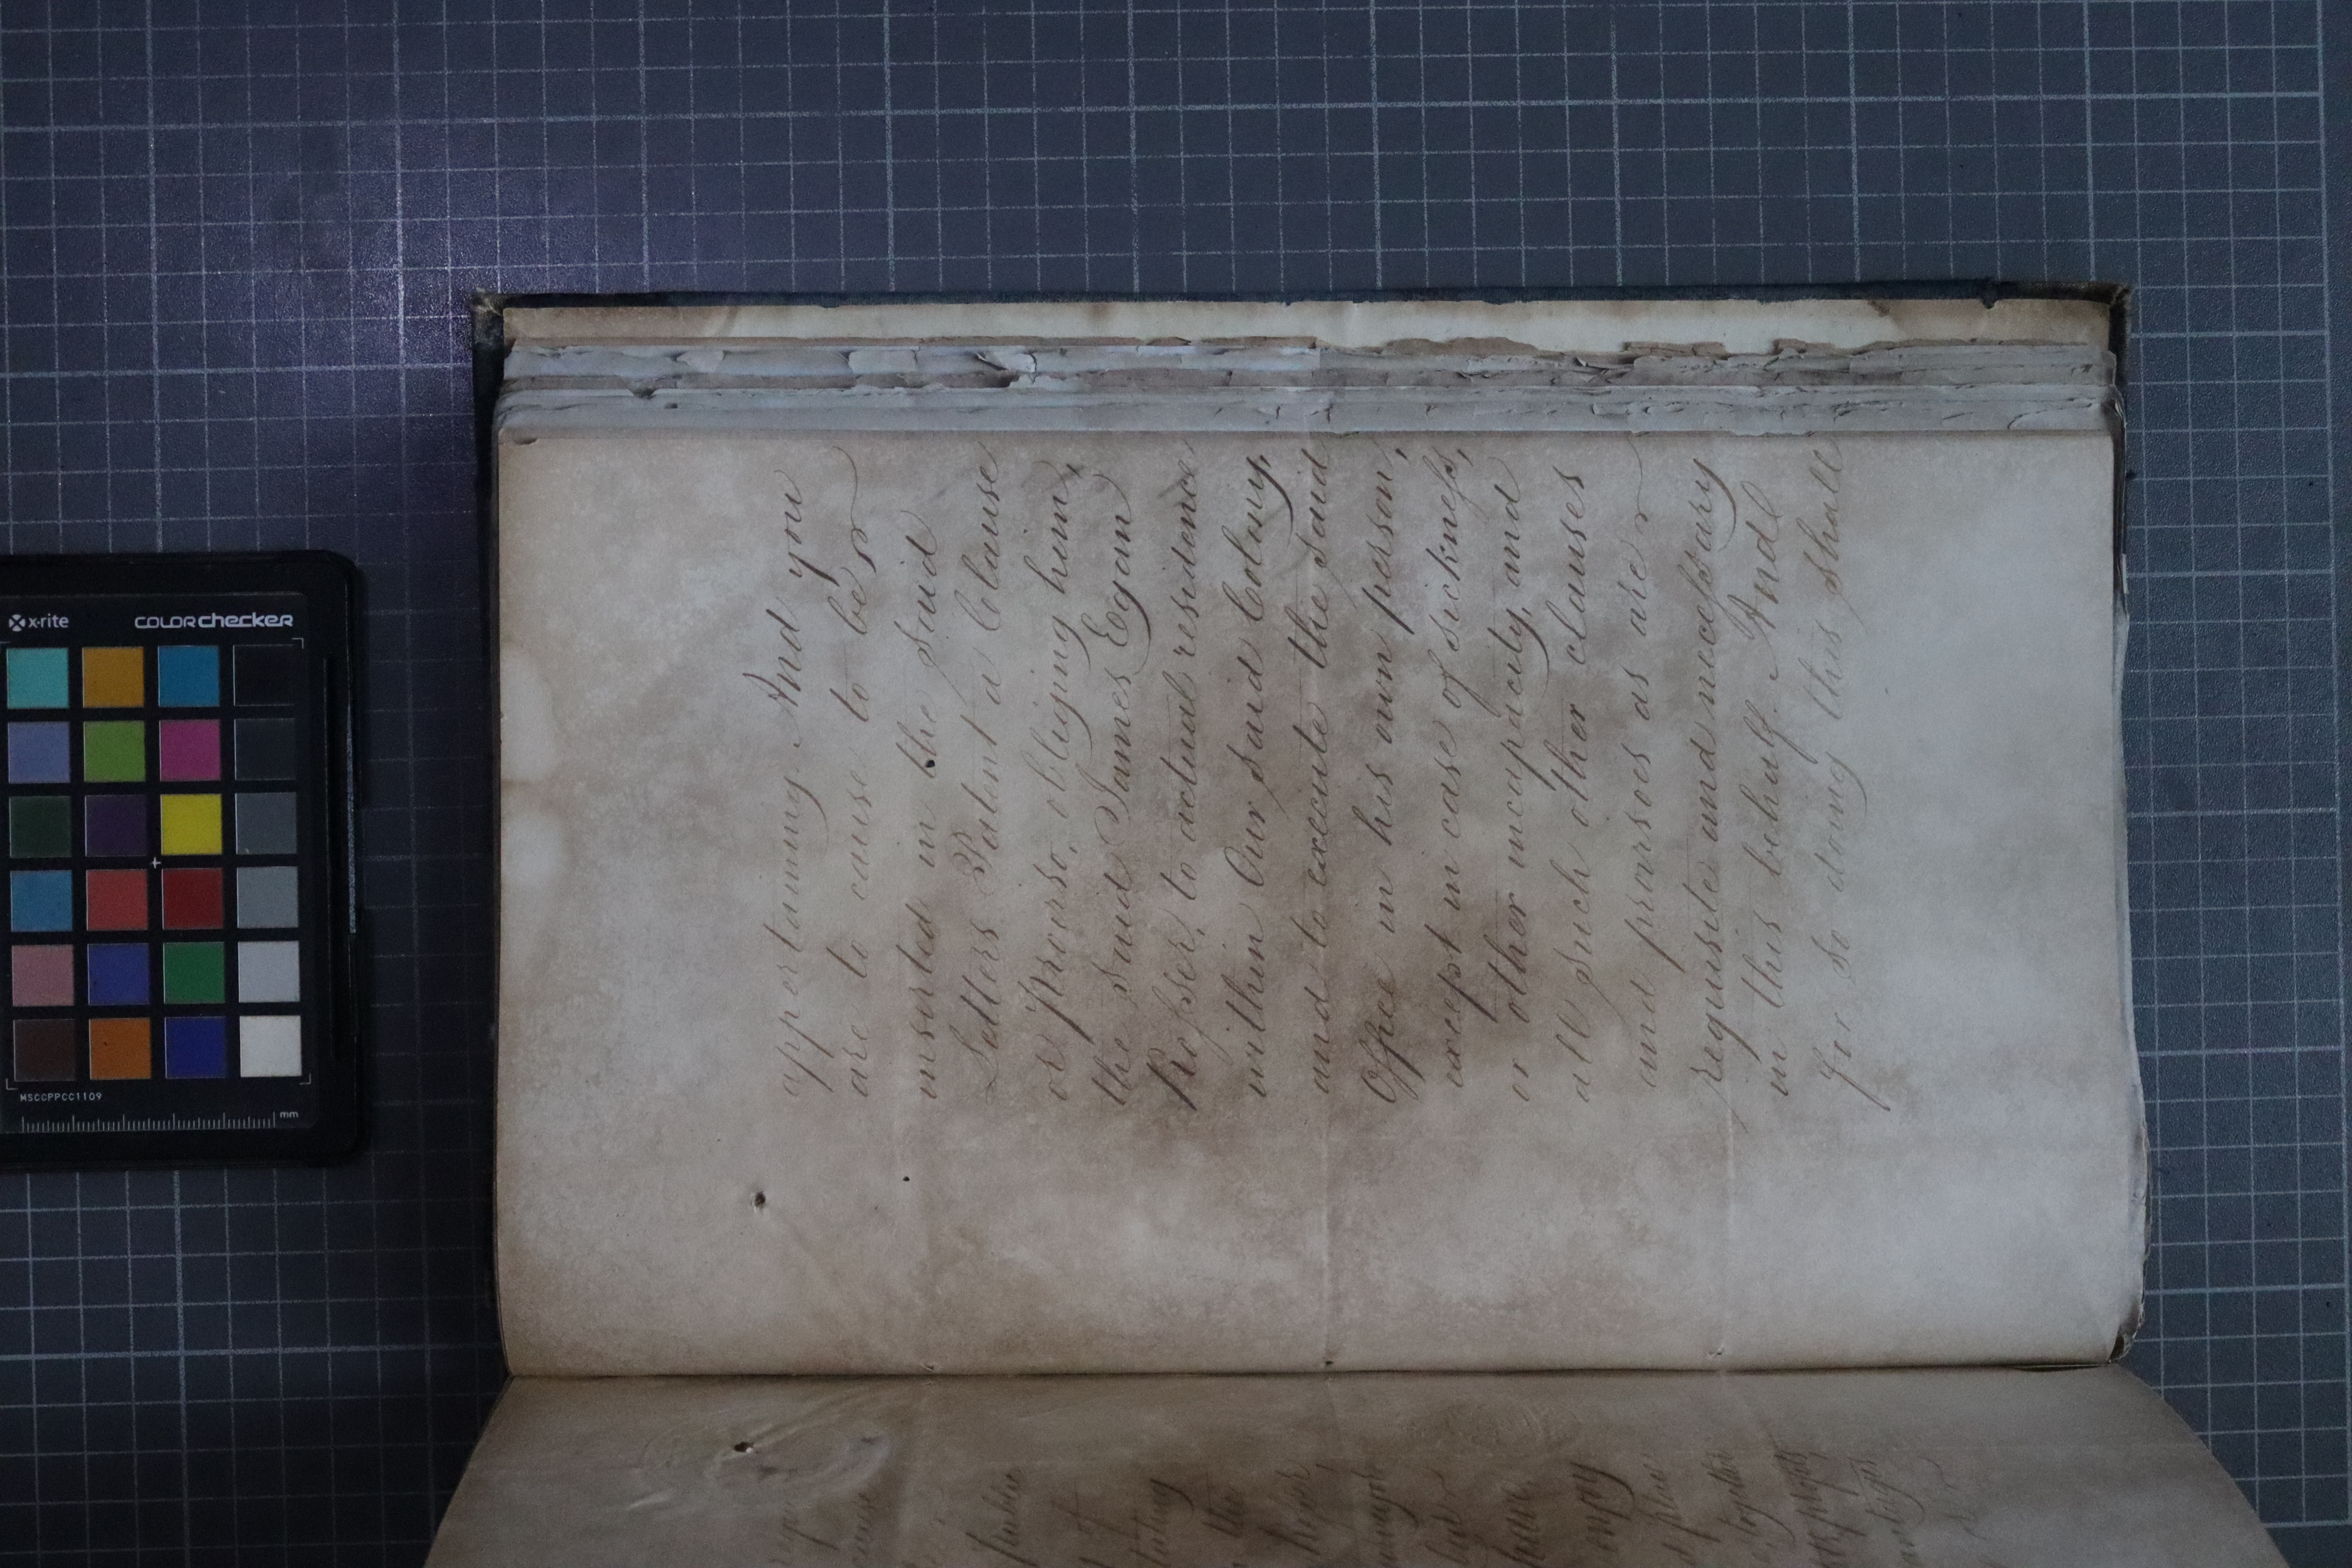 appertaining. And you
are to cause to be
inserted in the said
Letters Patent a Clause
or Proviso, obliging him,
the said James Egan
Kesser, to actual residence
within Our said Colony,
and to execute the said
Office in his own person,
except in case of sickness,
or other incapacity, and
all such other clauses
and provisoes as are
requisite and necessary
in this behalf. And
for so doing this shall
public
the
together
x-rite
colorchecker
MSCCPPCC1109
mm